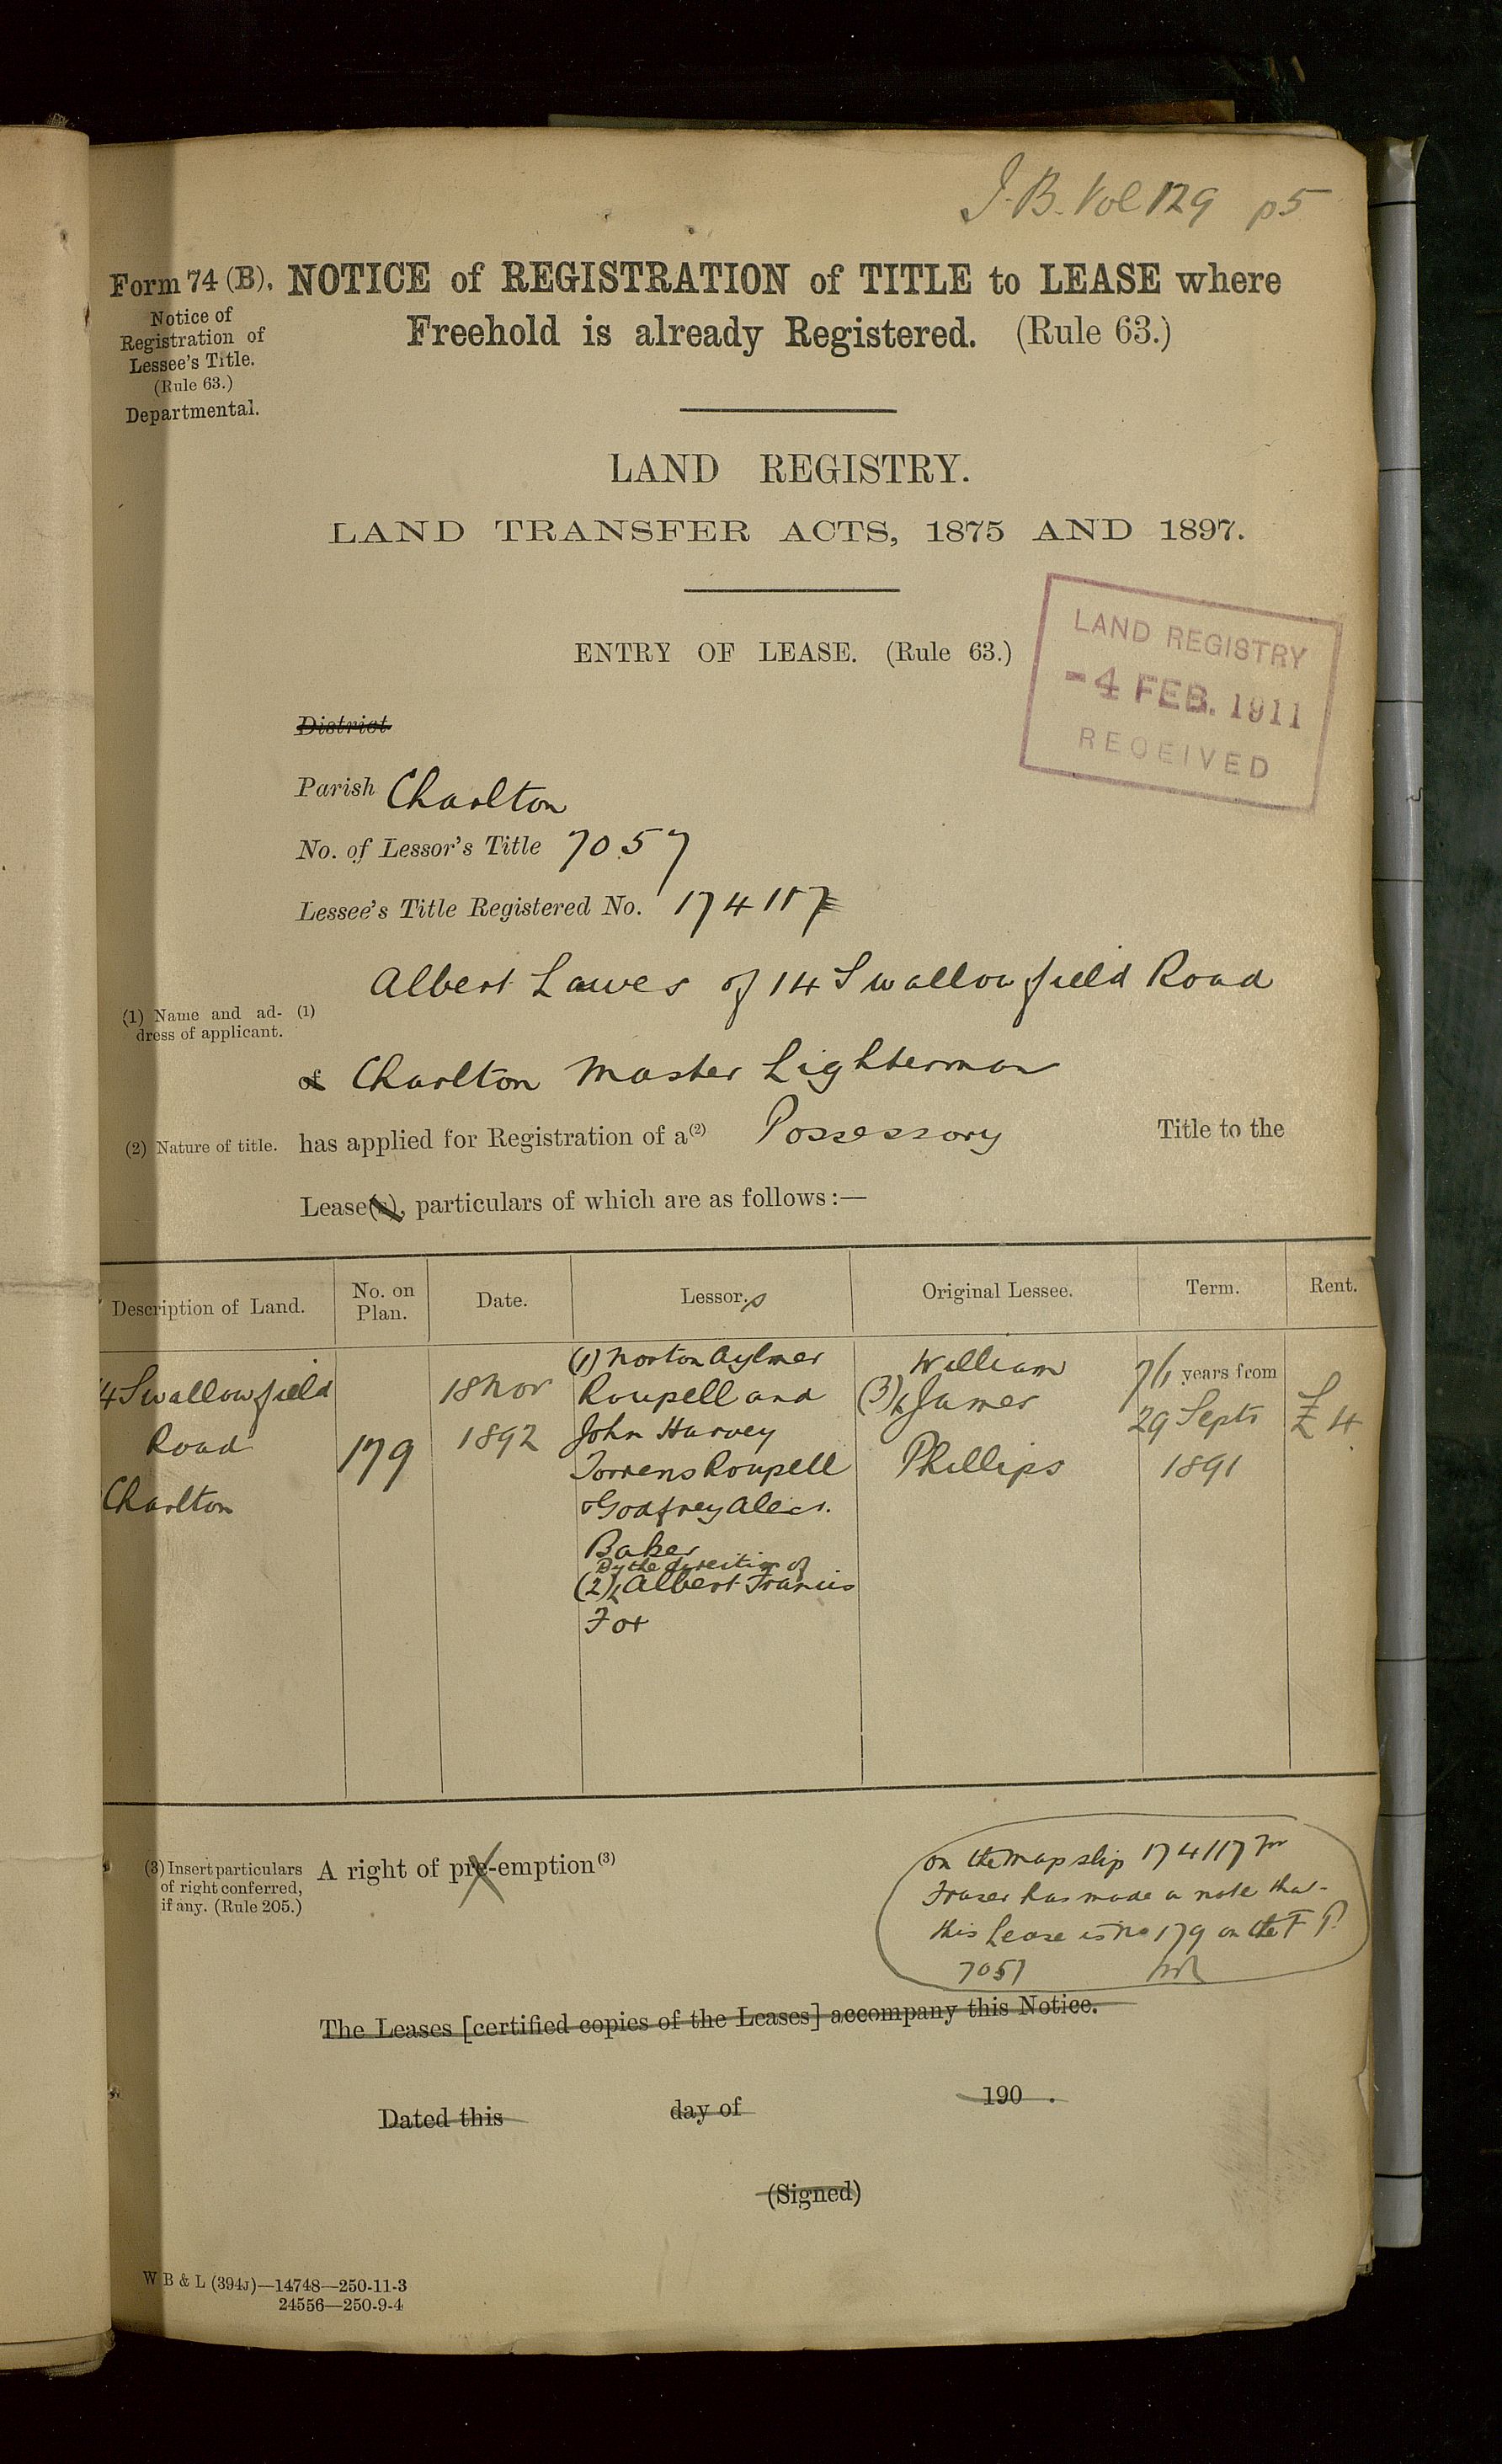 I.B. Vol 129 p5
Form 74 (B).
Notice of
Registration of
Lessee's Title.
(Rule 63.)
Departmental.
NOTICE of REGISTRATION of TITLE to LEASE where
Freehold is already Registered. (Rule 63.)
LAND REGISTRY.
LAND TRANSFER ACTS, 1875 AND 1897.
ENTRY OF LEASE. (Rule 63.)
LAND REGISTRY
-4 FEB. 1911
RECEIVED
District
Parish Charlton
No. of Lessor's Title 7057
Lessee's Title Registered No. 174117
Albert Lawes of 14 Swallowfield Road
(1) Name and ad-
dress of applicant.
(1)
of Charlton Master Lighterman
(2) Nature of title.
has applied for Registration of a(2) Possessory Title to the
Lease(s), particulars of which are as follows:—
Description of Land. No. on Plan. Date. Lessor.s Original Lessee. Term. Rent.
4 Swallowfield
Road
Charlton
179
18 Nov
1892
(1) Norton Aylmer
Roupell and
John Harvey
Torrens Roupell
& Godfrey Alexr.
Baker
By the direction of
(2) Albert Francis
Fox
William
(3) James
Phillips
71 years from
29 Septr
1891
£4
(3) Insert particulars
of right conferred,
if any. (Rule 205.)
A right of pre-emption(3)
On the map slip 174117 Mr
Fraser has made a note that
this Lease is No 179 on the F P.
7057
The Leases [certified copies of the Leases] accompany this Notice.
Dated this day of 190 .
(Signed)
W B & L (394J)—14748—250-11-3
24556—250-9-4